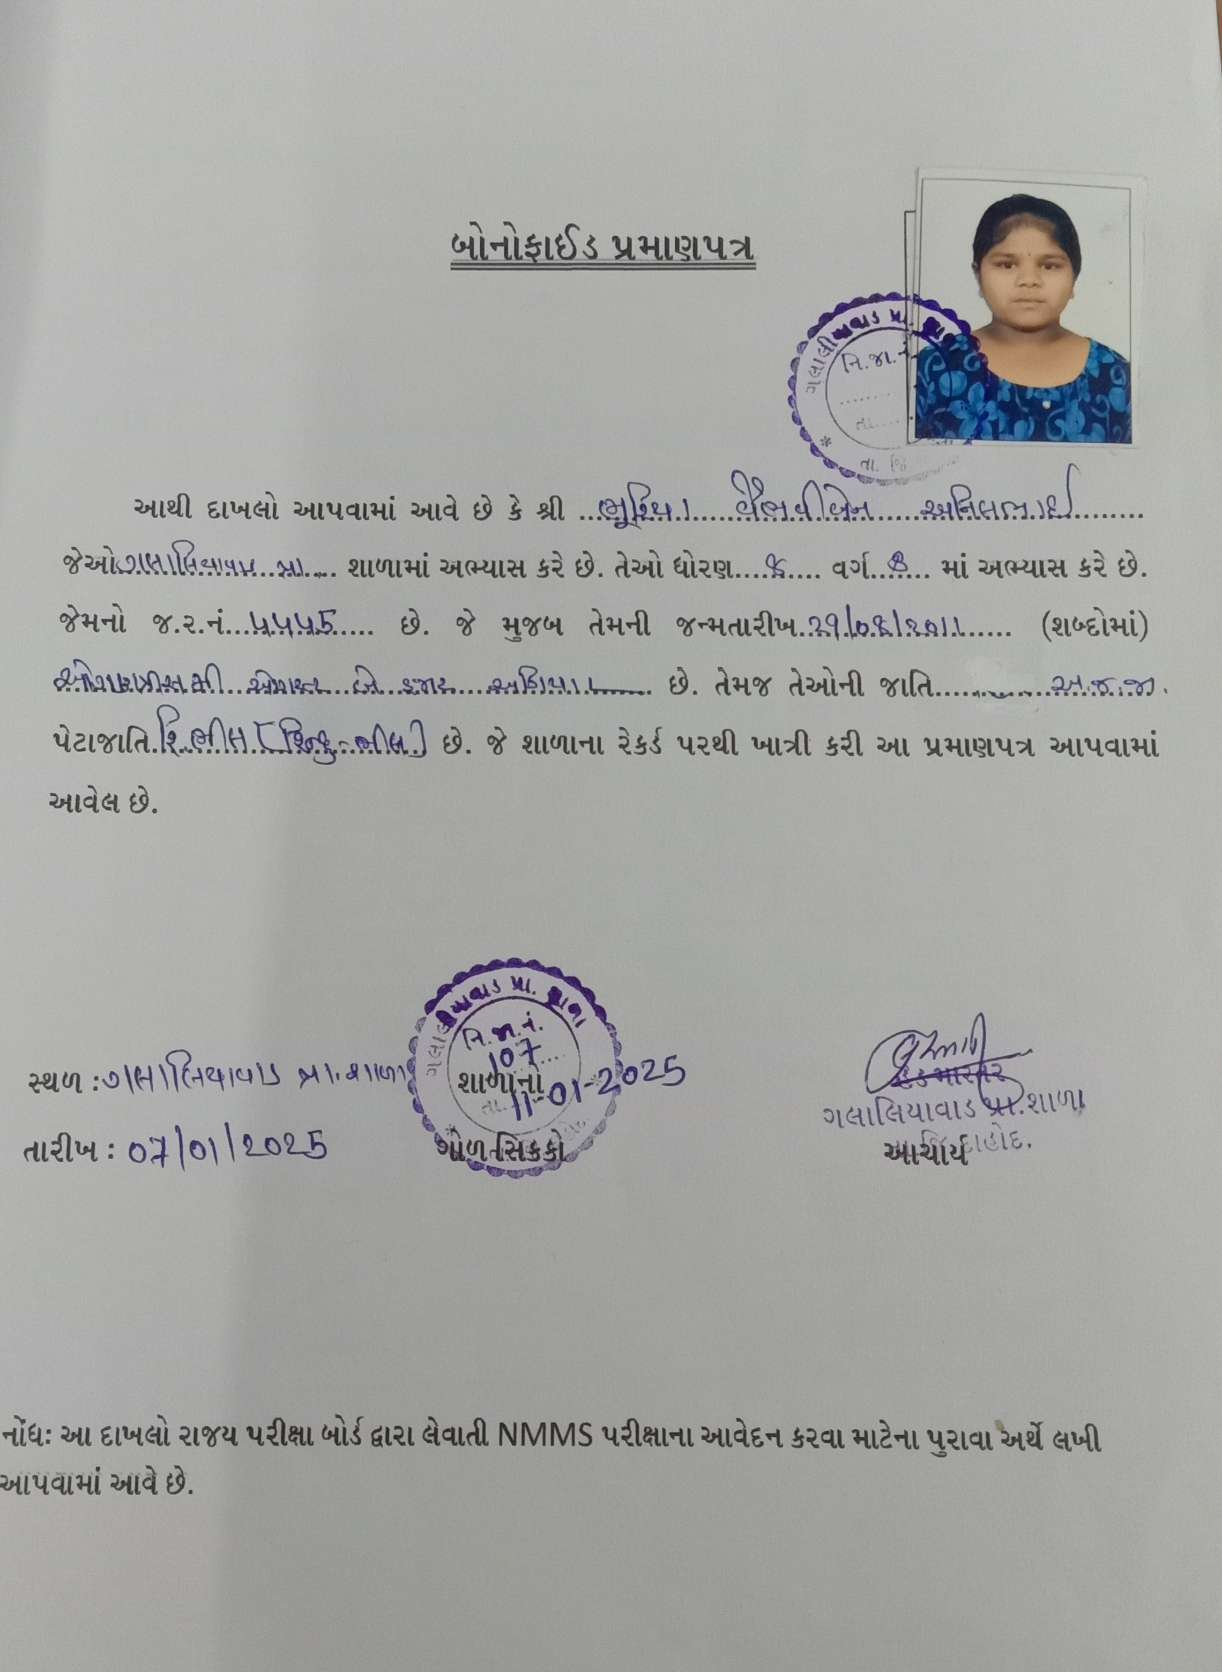 બોનોફાઈડ પ્રમાણપત્ર
ગલાલીયાવાડ પ્રા. શા
નિ.જા.નં
તા.....
તા. જિ
આથી દાખલો આપવામાં આવે છે કે શ્રી ...ભૂરિયા.....વૈભવીબેન.....અનિલભાઈ.........
જેઓ.ગલાલિયાવાડ..પ્રા.... શાળામાં અભ્યાસ કરે છે. તેઓ ધોરણ....૮.... વર્ગ..... માં અભ્યાસ કરે છે.
જેમનો જ.ર.નં...૫૫૫૬..... છે. જે મુજબ તેમની જન્મતારીખ..૨૧/૦૪/૨૦૧૧...... (શબ્દોમાં)
બે હજાર અગિયાર........ છે. તેમજ તેઓની જાતિ..............અ.જ.જા.
પેટાજાતિ.હિ.ભીલ [હિન્દુ-ભીલ] છે. જે શાળાના રેકર્ડ પરથી ખાત્રી કરી આ પ્રમાણપત્ર આપવામાં
આવેલ છે.
ગલાલીયાવાડ પ્રા. શાળા
નિ.જા.નં.
107....
સ્થળ : ગલાલિયાવાડ પ્રા.શાળા
શાળાનો
તા. 11-01-2025
હેડમાસ્તર
ગલાલિયાવાડ પ્રા.શાળા
તારીખ : 07/01/2025
ગોળ સિક્કો
આચાર્ય
જિ.દાહોદ.
નોંધઃ આ દાખલો રાજય પરીક્ષા બોર્ડ દ્વારા લેવાતી NMMS પરીક્ષાના આવેદન કરવા માટેના પુરાવા અર્થે લખી
આપવામાં આવે છે.